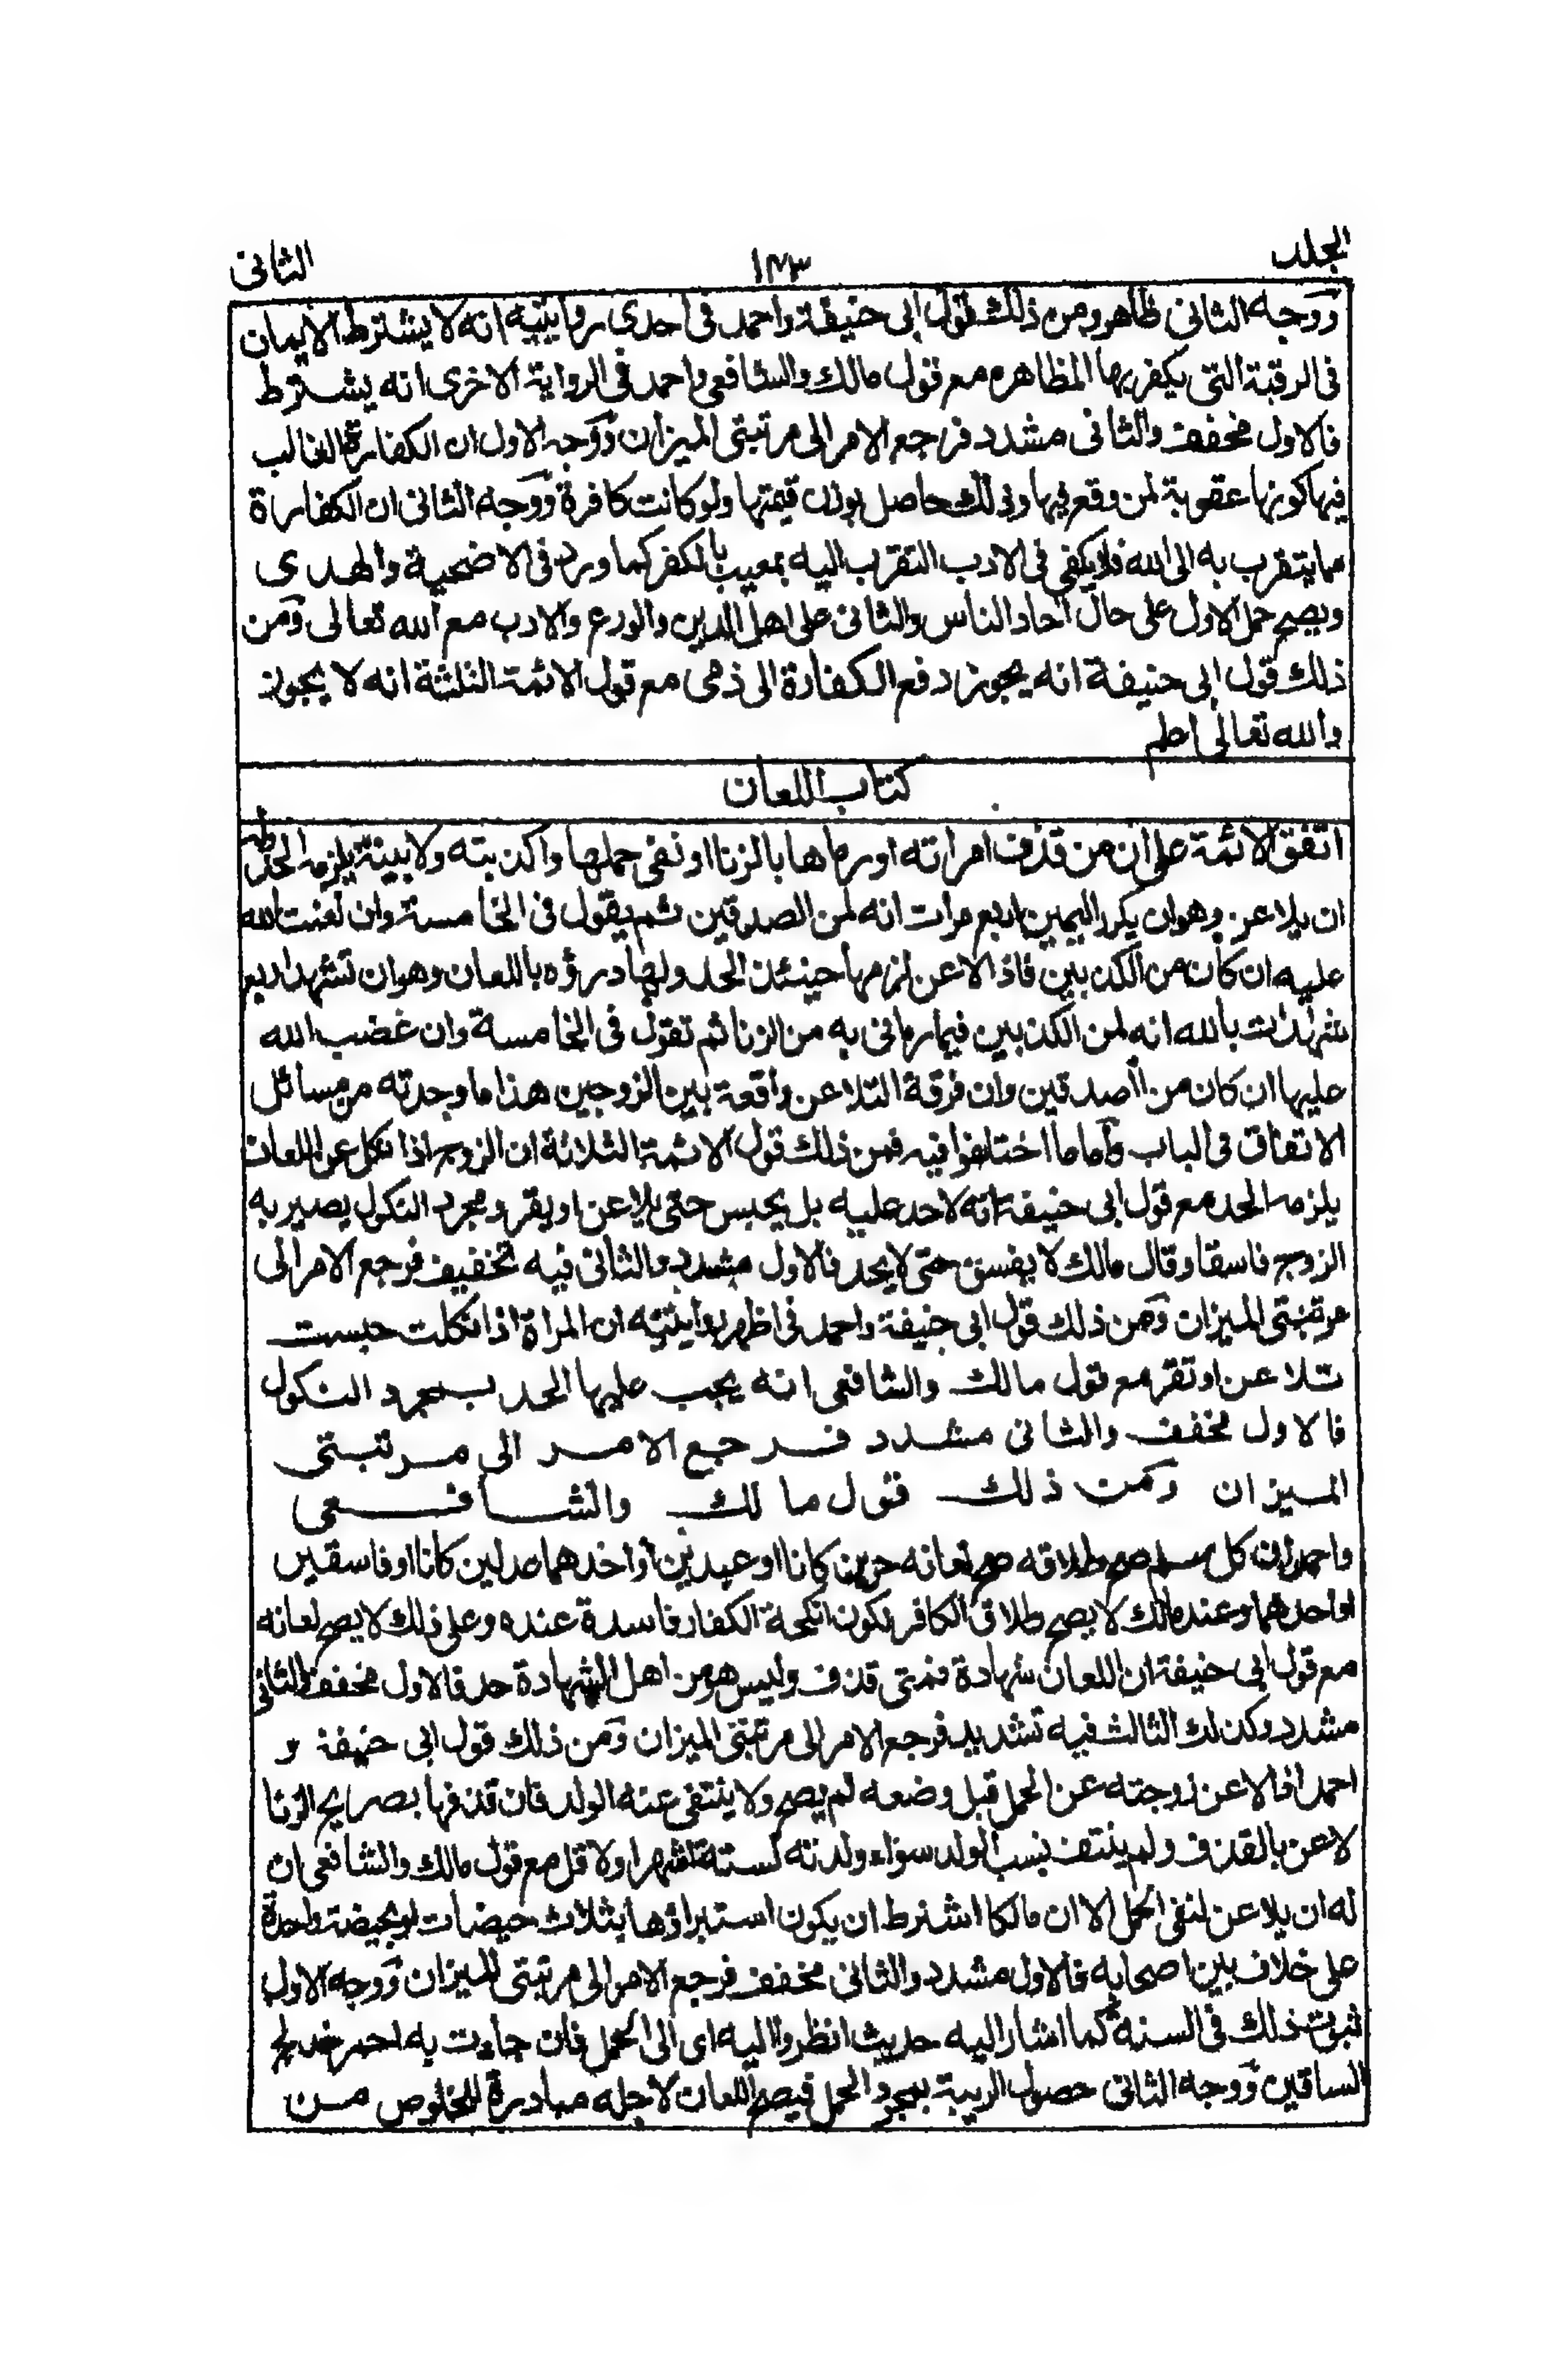 الجلد ١٤٣ الثانى
ووجه الثانى ظاهر ومن ذلك قول ابى حنيفة واحمد فى احدى روايتيه انه لا يشترط الايمان
فى الرقبة التى يكفر بها المظاهر مع قول مالك والشافعى واحمد فى الرواية الاخرى انه يشترط
فالاول مخفف والثانى مشدد فرجع الامر الى مرتبتى الميزان ووجه الاول ان الكفارة الغالب
فيها كونها عقوبة لمن وقع فيها وذلك حاصل بوزن قيمتها ولو كانت كافرة ووجه الثانى ان الكفارة
مما يتقرب به الى الله فلا يكفى فى الادب التقرب اليه بمعيب بالكفر كما ورد فى الاضحية والهدى
ويصح حمل الاول على حال احاد الناس والثانى على اهل الدين والورع والادب مع الله تعالى ومن
ذلك قول ابى حنيفة انه يجوز دفع الكفارة الى ذمى مع قول الائمة الثلثة انه لا يجوز
والله تعالى اعلم
كتاب اللعان
اتفق الائمة على ان من قذف امراته او رماها بالزنا او نفى حملها واكذبته ولا بينة يلزمه الحد وله
ان يلاعن وهو ان يكرر اليمين اربع مرات انه لمن الصدقين ثم يقول فى الخامسة وان لعنت الله
عليه ان كان من الكذبين فاذا لاعن لزمها حينئذ الحد ولها درؤه باللعان وهو ان تشهد اربع
شهدات بالله انه لمن الكذبين فيما رمانى به من الزنا ثم تقول فى الخامسة وان غضب الله
عليها ان كان من الصدقين وان فرقة التلاعن واقعة بين الزوجين هذا ما وجدته من مسائل
الاتفاق فى الباب واما ما اختلفوا فيه فمن ذلك قول الائمة الثلاثة ان الزوج اذا نكل عن اللعان
يلزمه الحد مع قول ابى حنيفة انه لا حد عليه بل يحبس حتى يلاعن او يقر ومجرد النكول يصير به
الزوج فاسقا وقال مالك لا يفسق حتى لا يحد فالاول مشدد والثانى فيه تخفيف فرجع الامر الى
مرتبتى الميزان ومن ذلك قول ابى حنيفة واحمد فى اظهر روايتيه ان المراة اذا نكلت حبست
تلاعن او تقر مع قول مالك والشافعى انه يجب عليها الحد بمجرد النكول
فالاول مخفف والثانى مشدد فرجع الامر الى مرتبتى
الميزان ومن ذلك قول مالك والشافعى
واحمد ان كل مسلم صح طلاقه صح لعانه حرين كانا او عبدين او احدهما عدلين كانا او فاسقين
او احدهما وعند مالك لا يصح طلاق الكافر لكون انكحة الكفار فاسدة عنده وعلى ذلك لا يصح لعانه
مع قول ابى حنيفة ان اللعان شهادة فمتى قذف وليس هو من اهل الشهادة حد فالاول مخفف والثانى
مشدد وكذلك الثالث فيه تشديد فرجع الامر الى مرتبتى الميزان ومن ذلك قول ابى حنيفة و
احمد اذا لاعن زوجته عن الحمل قبل وضعه لم يصح ولا ينتفى عنه الولد فان قذفها بصريح الزنا
لاعن بالقذف ولم ينتف نسب الولد سواء ولدته لستة اشهر او لاقل مع قول مالك والشافعى ان
له ان يلاعن لنفى الحمل الا ان مالكا اشترط ان يكون استبراؤها بثلاث حيضات او بحيضة واحدة
على خلاف بين اصحابه فالاول مشدد والثانى مخفف فرجع الامر الى مرتبتى الميزان ووجه الاول
ثبوت ذلك فى السنة كما اشار اليه حديث انظروا اليه اى الى الحمل فان جاءت به احمر خدلج
الساقين ووجه الثانى حصول الريبة بمجرد الحمل فيصح اللعان لاجله مبادرة للخلوص من